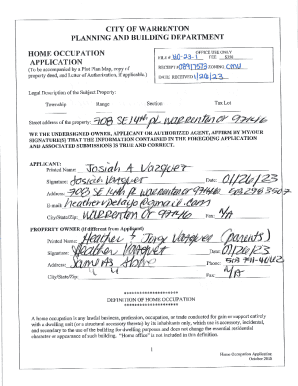 CITY OF WARRENTON
PLANNING AND BUILDING DEPARTMENT
HOME OCCUPATION
APPLICATION
(To be accompanied by a Plot Plan Map, copy of
property deed, and Letter of Authorization, if applicable.)
OFFICE USE ONLY
FILE # HO-23-1 FEE $
RECEIPT # ZONING
DATE RECEIVED 1/26/23
Legal Description of the Subject Property:
Township Range Section Tax Lot
Street address of the property: 708 SE 14th pl. Warrenton or 97146
WE THE UNDERSIGNED OWNER, APPLICANT OR AUTHORIZED AGENT, AFFIRM BY MY/OUR
SIGNATURE(S) THAT THE INFORMATION CONTAINED IN THE FOREGOING APPLICATION
AND ASSOCIATED SUBMISSIONS IS TRUE AND CORRECT.
APPLICANT:
Printed Name: Josiah A Vazquez
Signature: Josiah Vazquez Date: 01/26/23
Address: 708 SE 14th pl Warrenton or 97146
E-mail: heathervpelayo@gmail.com
City/State/Zip: Warrenton or 97146 Fax: N/A
PROPERTY OWNER (if different from Applicant)
Printed Name: Heather & Jorge Vazquez (parents)
Signature: Heather Vazquez Date: 01/26/23
Address: Same As Above Phone:
City/State/Zip: Fax: N/A
DEFINITION OF HOME OCCUPATION
A home occupation is any lawful business, profession, occupation, or trade conducted for gain or support entirely
with a dwelling unit (or a structural accessory thereto) by its inhabitants only, which use is accessory, incidental,
and secondary to the use of the building for dwelling purposes and does not change the essential residential
character or appearance of such building. "Home office" is not included in this definition.
1
Home Occupation Application
October 2010